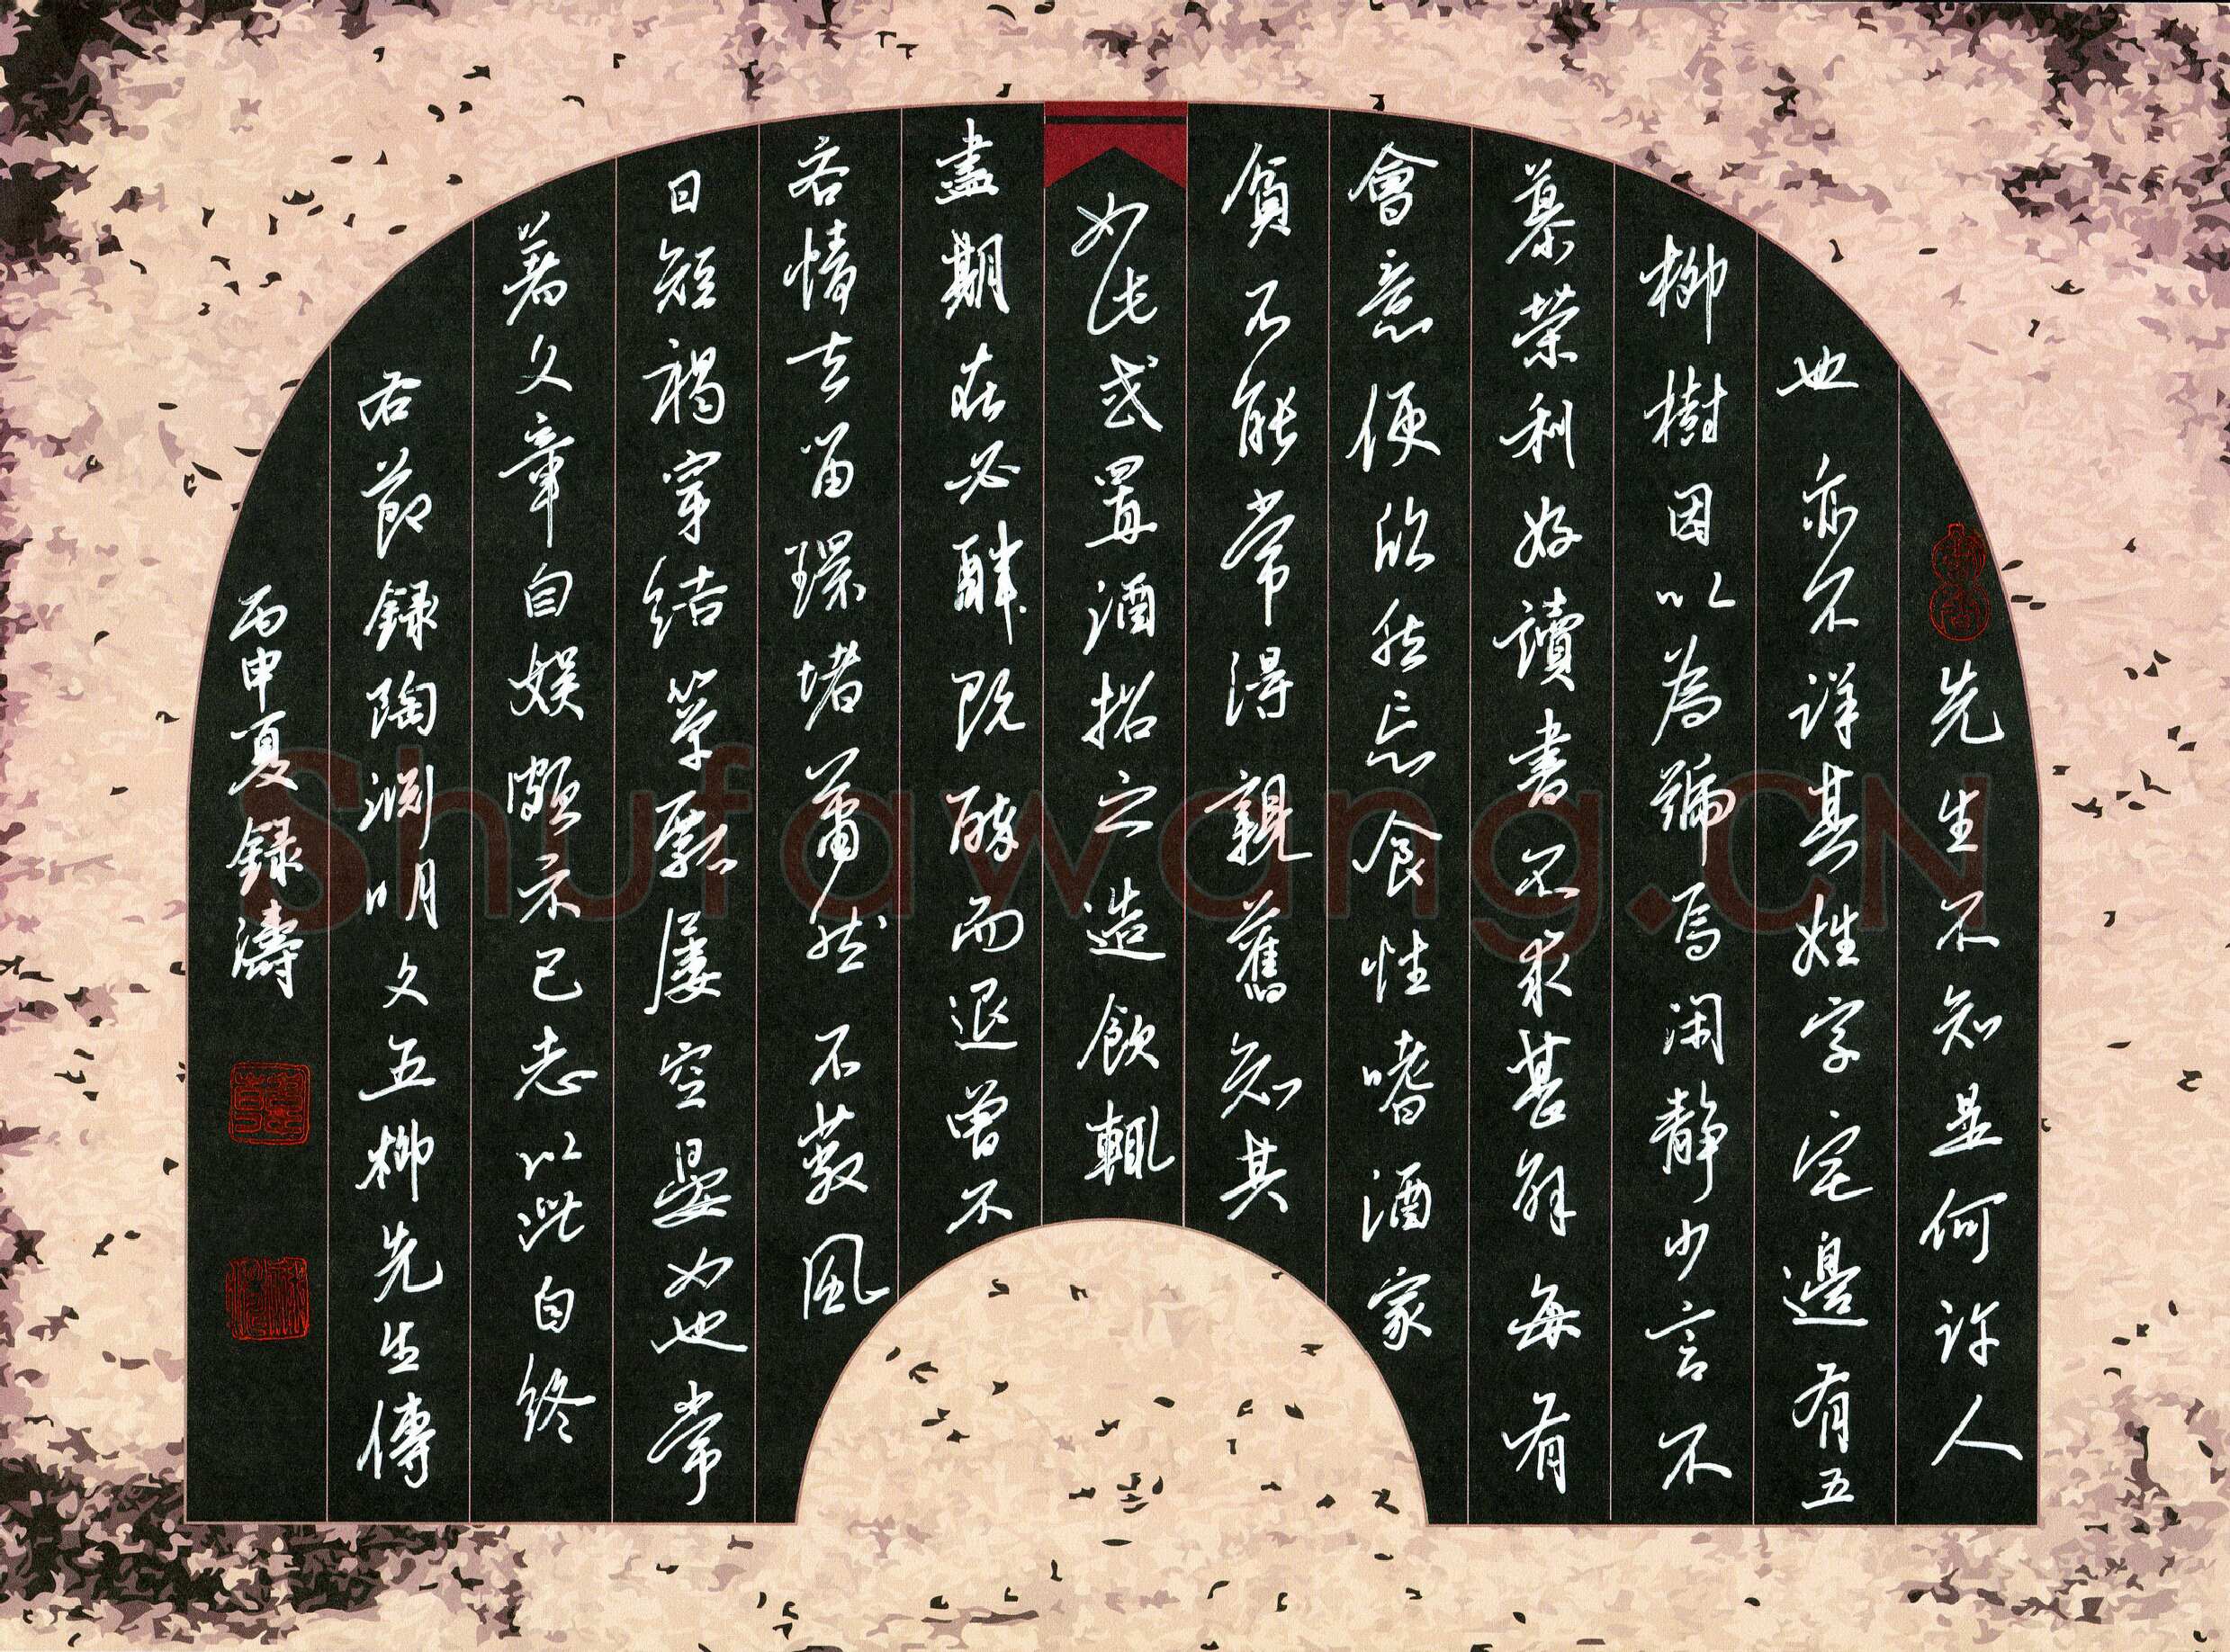 先生不知是何许人
也亦不详其姓字宅邊有五
柳樹因以為號焉闲静少言不
慕榮利好讀書不求甚解每有
會意便欣然忘食性嗜酒家
貧不能常得親舊知其
如此或置酒招之造飲輒
盡期在必醉既醉而退曾不
吝情去留環堵蕭然不蔽風
日短褐穿结箪瓢屡空晏如也常
著文章自娱颇示己志以此自终
右節録陶渊明文五柳先生傳
丙申夏録濤
Shufawang.CN